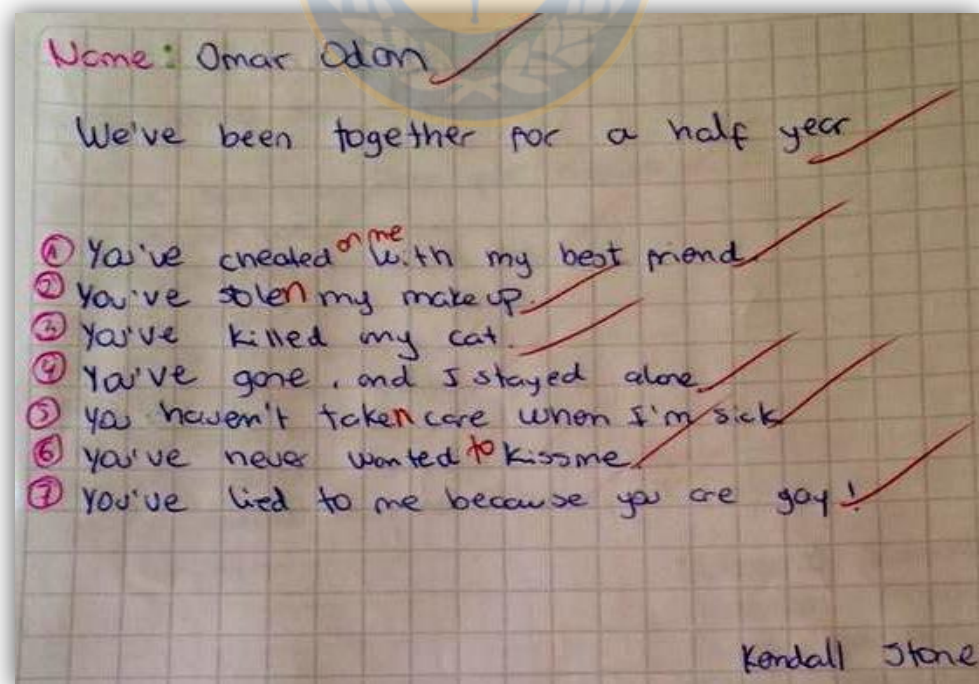 Name: Omar Odon
We've been together for a half year
① You've cheated on me with my best friend
② You've stolen my make up.
③ You've killed my cat.
④ You've gone, and I stayed alone
⑤ You haven't taken care when I'm sick
⑥ You've never wanted to kiss me
⑦ You've lied to me because you are gay!
Kendall Stone